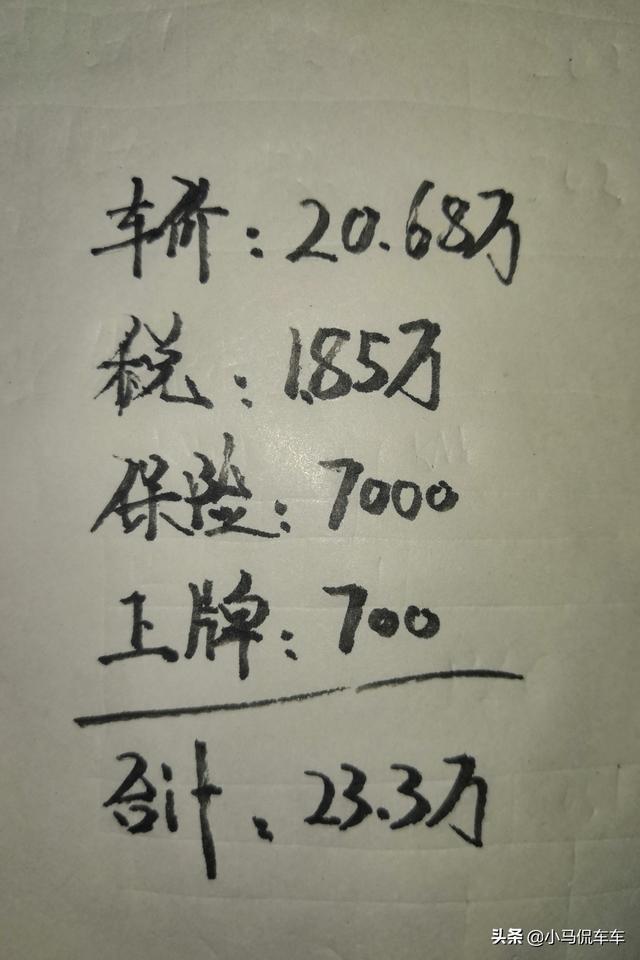 车价：20.68万
税：1.85万
保险：7000
上牌：700
合计：23.3万
头条 @小马侃车车